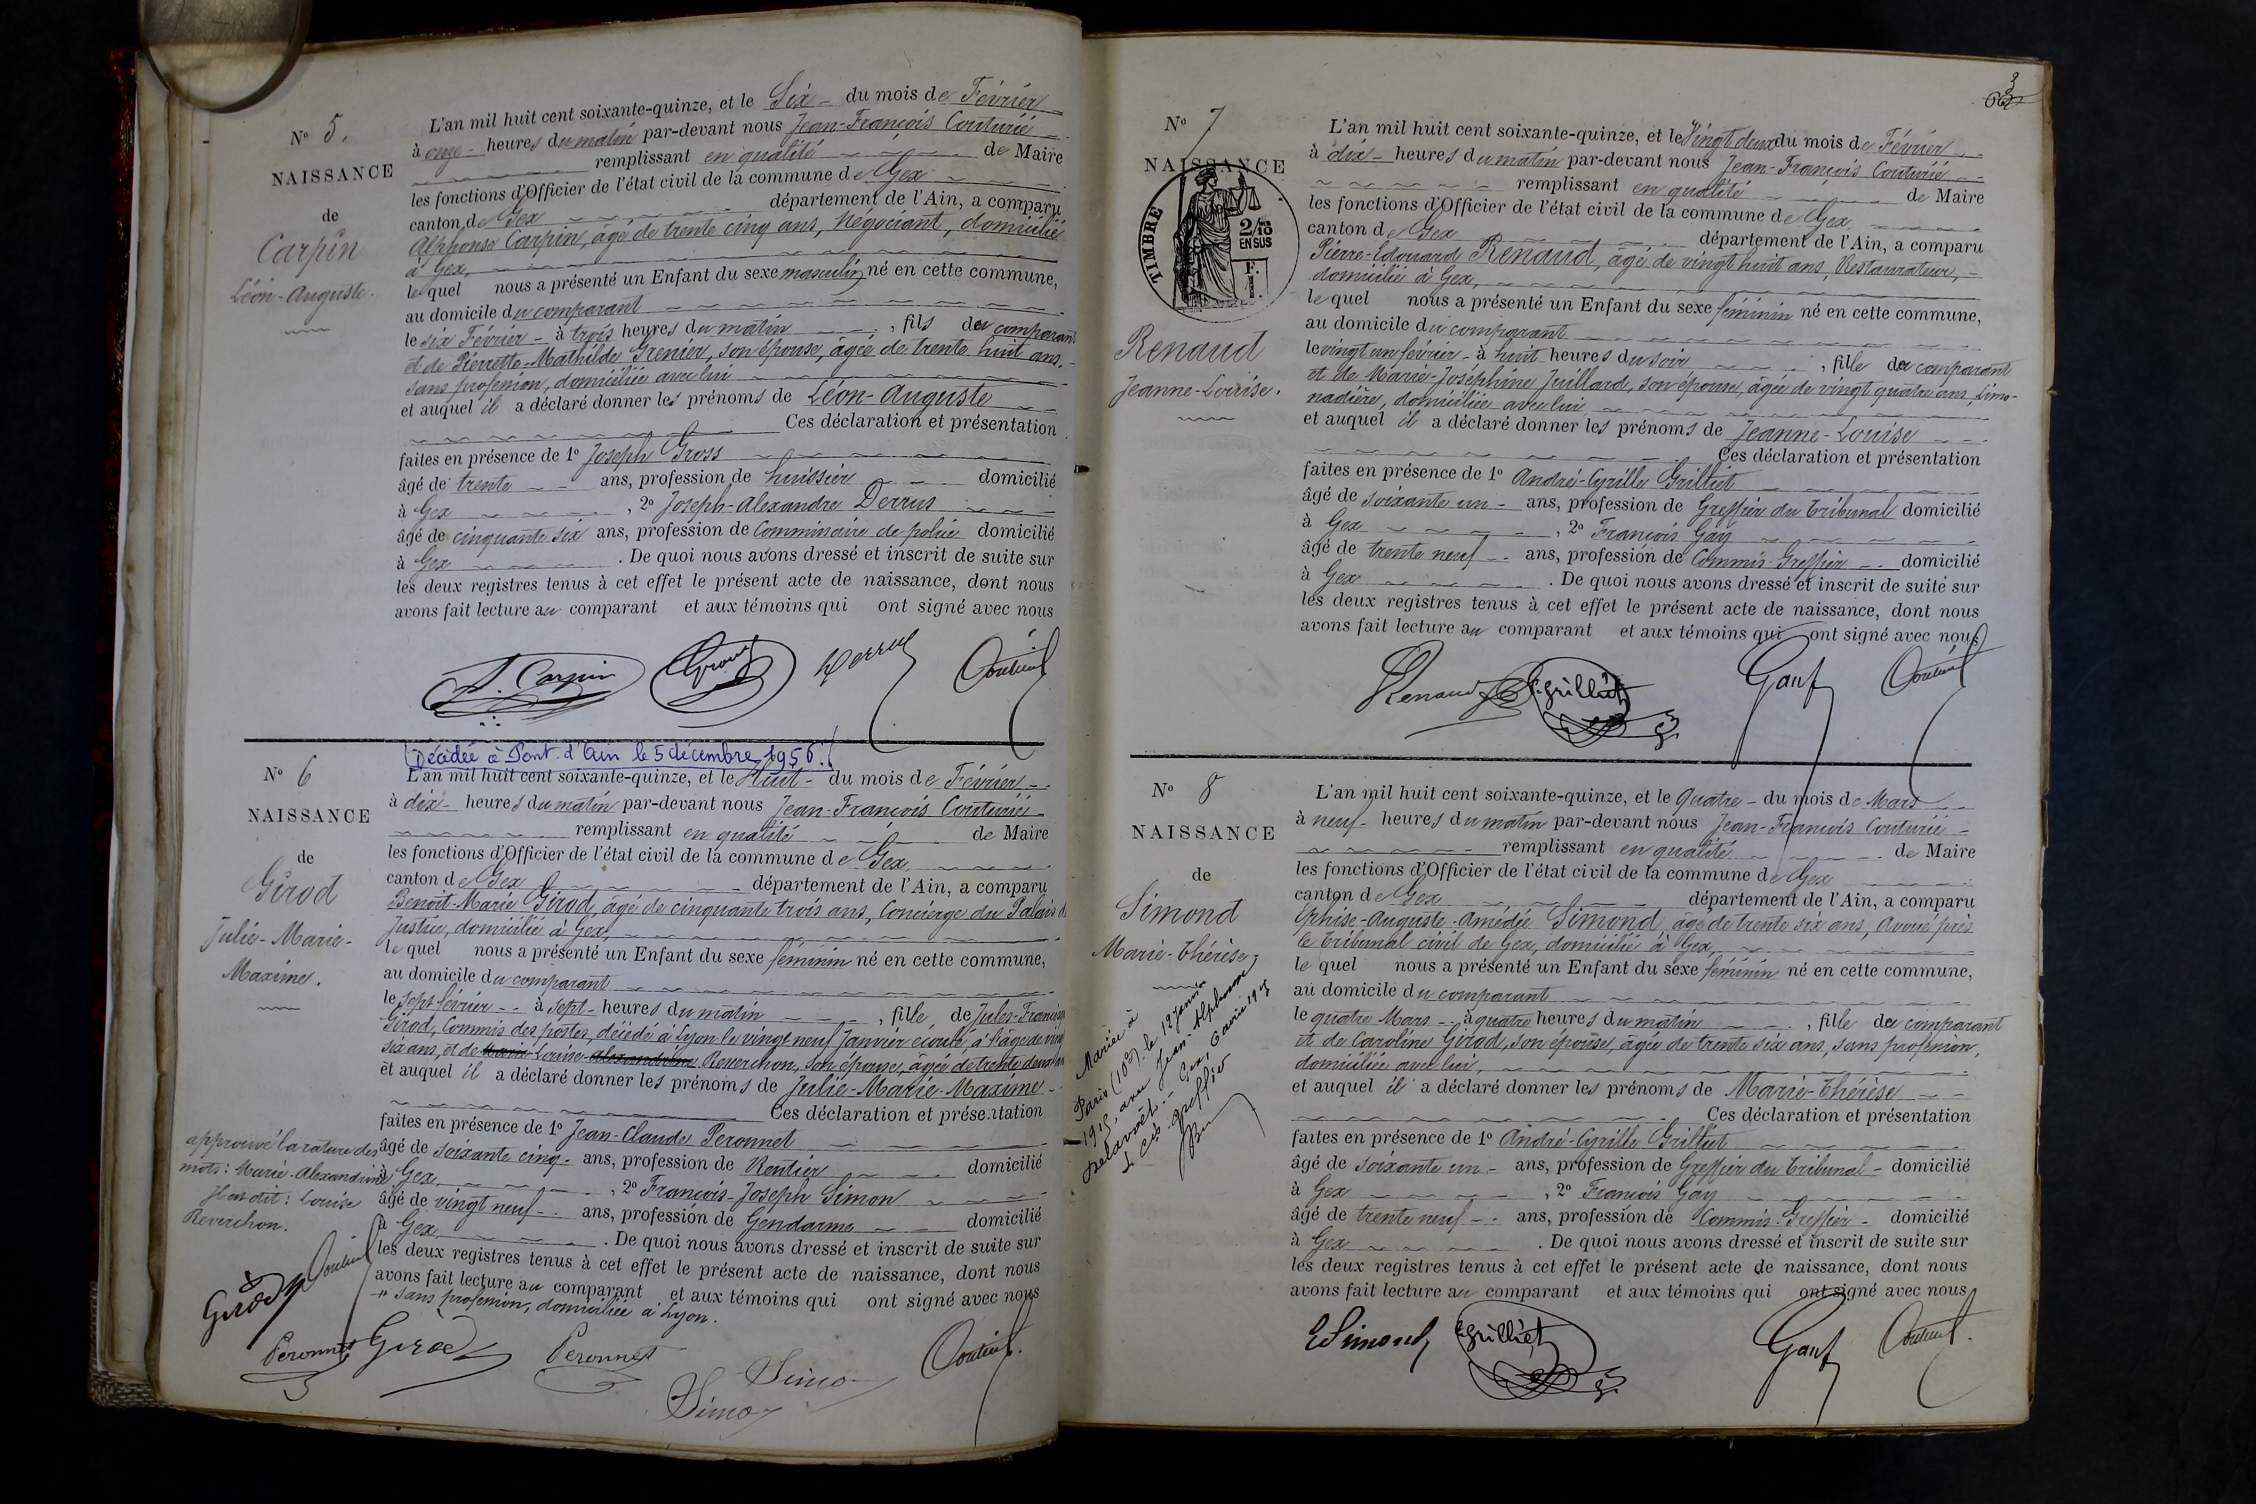 N° 5.
NAISSANCE
de
Carpin
Léon-Auguste.
L'an mil huit cent soixante-quinze, et le Six du mois de Février
à onze heures du matin par-devant nous Jean-François Couturié
remplissant en qualité de Maire
les fonctions d'Officier de l'état civil de la commune de Gex
canton de Gex département de l'Ain, a comparu
Alphonse Carpin, âgé de trente cinq ans, Négociant, domicilié
à Gex,
lequel nous a présenté un Enfant du sexe masculin né en cette commune,
au domicile du comparant
le six Février à trois heures du matin, fils du comparant
et de Pierrette-Mathilde Grenier, son épouse, âgée de trente huit ans,
sans profession, domiciliée avec lui
et auquel il a déclaré donner les prénoms de Léon-Auguste
Ces déclaration et présentation
faites en présence de 1° Joseph Gross
âgé de trente ans, profession de huissier domicilié
à Gex, 2° Joseph-Alexandre Derrus
âgé de cinquante six ans, profession de Commissaire de police domicilié
à Gex. De quoi nous avons dressé et inscrit de suite sur
les deux registres tenus à cet effet le présent acte de naissance, dont nous
avons fait lecture au comparant et aux témoins qui ont signé avec nous
A. Carpin Gross Derrus Couturié
Décédée à Pont-d'Ain le 5 décembre 1956.
N° 6
NAISSANCE
de
Girod
Julie-Marie-
Maxime.
L'an mil huit cent soixante-quinze, et le Huit du mois de Février
à dix heures du matin par-devant nous Jean-François Couturié
remplissant en qualité de Maire
les fonctions d'Officier de l'état civil de la commune de Gex
canton de Gex département de l'Ain, a comparu
Benoît-Marie Girod, âgé de cinquante trois ans, Concierge du Palais de
Justice, domicilié à Gex,
lequel nous a présenté un Enfant du sexe féminin né en cette commune,
au domicile du comparant
le sept février à sept heures du matin, fille de Jules-François
Girod, Commis des postes, décédé à Lyon le vingt neuf Janvier écoulé, à l'âge de vingt
six ans, et de Marie-Louise-Alexandrine Reverchon, son épouse, âgée de trente deux ans
et auquel il a déclaré donner les prénoms de Julie-Marie-Maxime
Ces déclaration et présentation
faites en présence de 1° Jean-Claude Peronnet
âgé de soixante cinq ans, profession de Rentier domicilié
à Gex, 2° François-Joseph Simon
âgé de vingt neuf ans, profession de Gendarme domicilié
à Gex. De quoi nous avons dressé et inscrit de suite sur
les deux registres tenus à cet effet le présent acte de naissance, dont nous
avons fait lecture au comparant et aux témoins qui ont signé avec nous
sans profession, domiciliée à Lyon.
approuvé la rature des
mots: Marie-Alexandrine
Il est dit: Louise
Reverchon.
Girod Couturié
Peronnet Girod Peronnet Simon Couturié
Simon
3
N° 7
NAISSANCE
TIMBRE
2/10
EN SUS
F.
1.
Renaud
Jeanne-Louise.
L'an mil huit cent soixante-quinze, et le Vingt deux du mois de Février
à dix heures du matin par-devant nous Jean-François Couturié
remplissant en qualité de Maire
les fonctions d'Officier de l'état civil de la commune de Gex
canton de Gex département de l'Ain, a comparu
Pierre-Edouard Renaud, âgé de vingt huit ans, Restaurateur,
domicilié à Gex,
lequel nous a présenté un Enfant du sexe féminin né en cette commune,
au domicile du comparant
le vingt un février à huit heures du soir, fille du comparant
et de Marie-Joséphine Juillard, son épouse, âgée de vingt quatre ans, Limo-
nadière, domiciliée avec lui
et auquel il a déclaré donner les prénoms de Jeanne-Louise
Ces déclaration et présentation
faites en présence de 1° André-Cyrille Grilliet
âgé de soixante un ans, profession de Greffier du Tribunal domicilié
à Gex, 2° François Gay
âgé de trente neuf ans, profession de Commis-Greffier domicilié
à Gex. De quoi nous avons dressé et inscrit de suite sur
les deux registres tenus à cet effet le présent acte de naissance, dont nous
avons fait lecture au comparant et aux témoins qui ont signé avec nous
Renaud Grilliet Gay Couturié
N° 8
NAISSANCE
de
Simond
Marie-Thérèse.
Mariée à
Paris (10e), le 12 Janvier
1915, avec Jean Alphonse
Delavoët. Gex, 6 avril 1915
Le Cis-Greffier
L'an mil huit cent soixante-quinze, et le Quatre du mois de Mars
à neuf heures du matin par-devant nous Jean-François Couturié
remplissant en qualité de Maire
les fonctions d'Officier de l'état civil de la commune de Gex
canton de Gex département de l'Ain, a comparu
Ephise-Auguste-Amédée Simond, âgé de trente six ans, Avoué près
le Tribunal civil de Gex, domicilié à Gex,
lequel nous a présenté un Enfant du sexe féminin né en cette commune,
au domicile du comparant
le quatre Mars à quatre heures du matin, fille du comparant
et de Caroline Girod, son épouse, âgée de trente six ans, sans profession,
domiciliée avec lui,
et auquel il a déclaré donner les prénoms de Marie-Thérèse
Ces déclaration et présentation
faites en présence de 1° André-Cyrille Grilliet
âgé de soixante un ans, profession de Greffier du Tribunal domicilié
à Gex, 2° François Gay
âgé de trente neuf ans, profession de Commis-Greffier domicilié
à Gex. De quoi nous avons dressé et inscrit de suite sur
les deux registres tenus à cet effet le présent acte de naissance, dont nous
avons fait lecture au comparant et aux témoins qui ont signé avec nous
E Simond Grilliet Gay Couturié